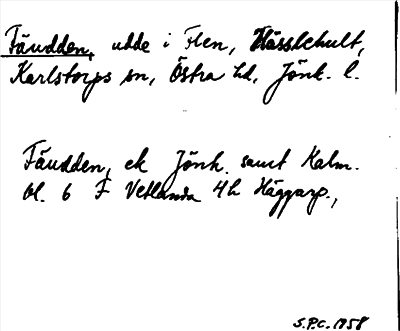 Fäudden, udde i Flen, Hässlehult,
Karlstorps sn, Östra hd, Jönk. l.
Fäudden, ek Jönk. samt Kalm.
bl. 6 F Vetlanda 4h Häggarp.,
S.P.C. 1958